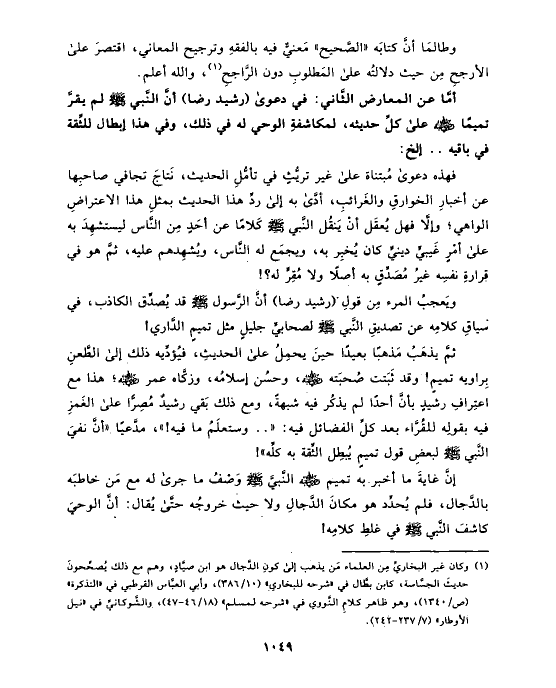 وطالمَا أنَّ كتابَه «الصَّحيح» مَعنيٌّ فيه بالفقهِ وترجيح المعاني، اقتصرَ علىٰ
الأرجحِ مِن حيث دلالتُه علىٰ المَطلوبِ دون الرَّاجحِ(١)، والله أعلم.
أمَّا عن المعارض الثَّاني: في دعوىٰ (رشيد رضا) أنَّ النَّبي ﷺ لم يقرَّ
تميمًا ﵁ علىٰ كلِّ حديثه، لمكاشفةِ الوحي له في ذلك، وفي هذا إبطال للثِّقة
في باقيه .. إلخ:
فهذه دعوىٰ مُبتناة علىٰ غير تريُّثٍ في تأمُّل الحديث، نَتاجَ تجافي صاحبِها
عن أخبارِ الخوارقِ والغَرائبِ، أدَّىٰ به إلىٰ ردِّ هذا الحديث بمثلِ هذا الاعتراضِ
الواهي؛ وإلَّا فهل يُعقَل أنْ يَنقُل النَّبي ﷺ كلامًا عن أحَدٍ مِن النَّاس ليستشهِدَ به
علىٰ أمْرٍ غَيبيٍّ دينيٍّ كان يُخبِر به، ويجمَع له النَّاس، ويُشهِدهم عليه، ثمَّ هو في
قرارةِ نفسِه غيرُ مُصَدِّقٍ به أصلًا ولا مُقِرٍّ له؟!
ويَعجبُ المرء مِن قولِ (رشيد رضا) أنَّ الرَّسول ﷺ قد يُصدِّق الكاذب، في
سياقِ كلامِه عن تصديقِ النَّبي ﷺ لصحابيٍّ جليلٍ مثل تميمٍ الدَّاري!
ثمَّ يذهَبُ مَذهبًا بعيدًا حينَ يحمِلُ علىٰ الحديثِ، فيُؤدِّيه ذلك إلىٰ الطَّعنِ
بِراويه تميمٍ! وقد ثبَتت صُحبَته ﵁، وحسُن إسلامُه، وزكَّاه عمر ﵁؛ هذا مع
اعترافِ رشيدٍ بأنَّ أحدًا لم يذكُر فيه شبهةً، ومع ذلك بَقي رشيدٌ مُصِرًّا علىٰ الغَمزِ
فيه بقولِه للقُرَّاء بعد كلِّ الفضائل فيه: «.. وستعلَمُ ما فيه!»، مدَّعيًا «أنَّ نفيَ
النَّبي ﷺ لبعضِ قول تميمٍ يُبطِل الثِّقة به كلِّه»!
إنَّ غايةَ ما أخبر به تميم ﵁ النَّبيَّ ﷺ وَصْفُ ما جرىٰ له مع مَن خاطبَه
بالدَّجال، فلم يُحدِّد هو مكانَ الدَّجالِ ولا حيث خروجُه حتَّىٰ يُقال: أنَّ الوحيَ
كاشفَ النَّبي ﷺ في غلطِ كلامِه!
(١) وكان غير البخاريِّ مِن العلماء مَن يذهب إلىٰ كونِ الدَّجال هو ابن صيَّادٍ، وهم مع ذلك يُصحِّحونَ
حديثَ الجسَّاسة، كابن بطَّال في «شرحه للبخاري» (١٠/٣٨٦)، وأبي العبَّاس القرطبي في «التذكرة»
(ص/١٣٤٠)، وهو ظاهر كلامِ النَّووي في «شرحه لمسلم» (١٨/٤٦-٤٧)، والشَّوكاني في «نيل
الأوطار» (٧/٢٣٧-٢٤٢).
١٠٤٩